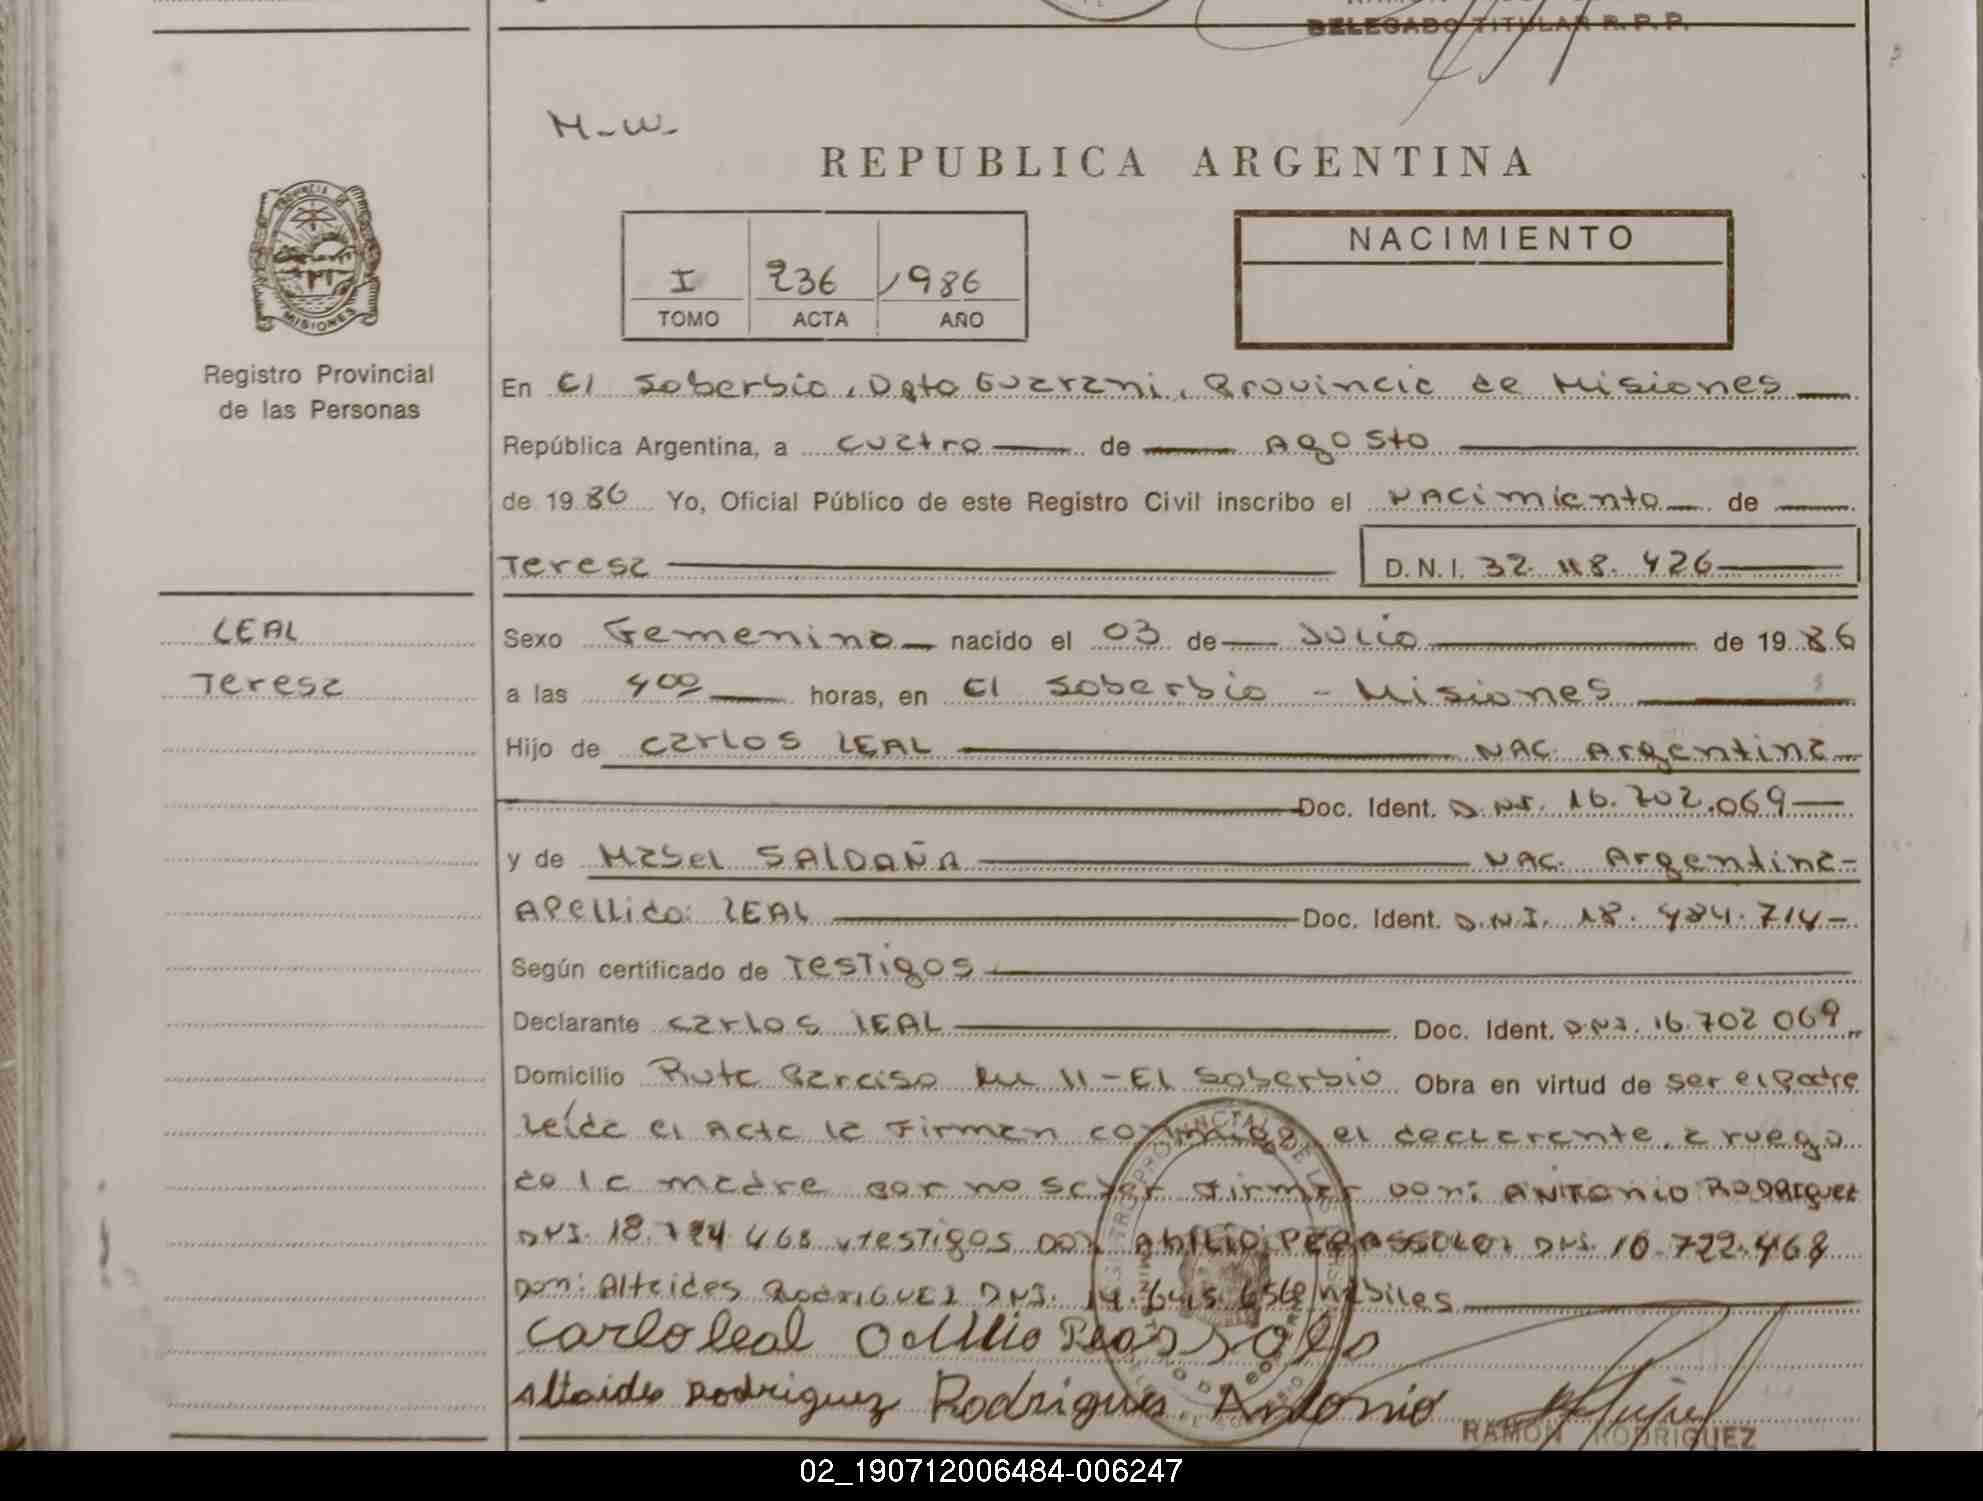 DELEGADO TITULAR R.P.P.
M-W-
REPUBLICA ARGENTINA
PROVINCIA DE
MISIONES
Registro Provincial
de las Personas
I 236 1986
TOMO ACTA AÑO
NACIMIENTO
En El Soberbio, Dpto Guarani, Provincia de Misiones
República Argentina, a cuatro de Agosto
de 1986 Yo, Oficial Público de este Registro Civil inscribo el Nacimiento de
Teresa D.N.I. 32.118.426
LEAL
Teresa
Sexo Femenino nacido el 03 de Julio de 1986
a las 400 horas, en El Soberbio - Misiones
Hijo de Carlos LEAL NAC. Argentina
Doc. Ident. D.NI. 16.702.069
y de Mabel SALDAÑA NAC. Argentina
Apellido: LEAL Doc. Ident. D.N.I. 18.484.714
Según certificado de Testigos
Declarante Carlos LEAL Doc. Ident. DNI. 16.702 069
Domicilio Ruta Km 11 - El Soberbio Obra en virtud de ser el Padre
Leída el Acta la Firman conmigo el declarante, a ruego
de la madre por no saber Firmar don: ANTONIO RODRIGUEZ
DNI. 468 y Testigos don DNI. 10.722.468
Don: Altaides RODRIGUEZ DNI. 14. habiles
Carlo leal
Altaides Rodriguez Rodrigues Antonio
RAMON RODRIGUEZ
02_190712006484-006247